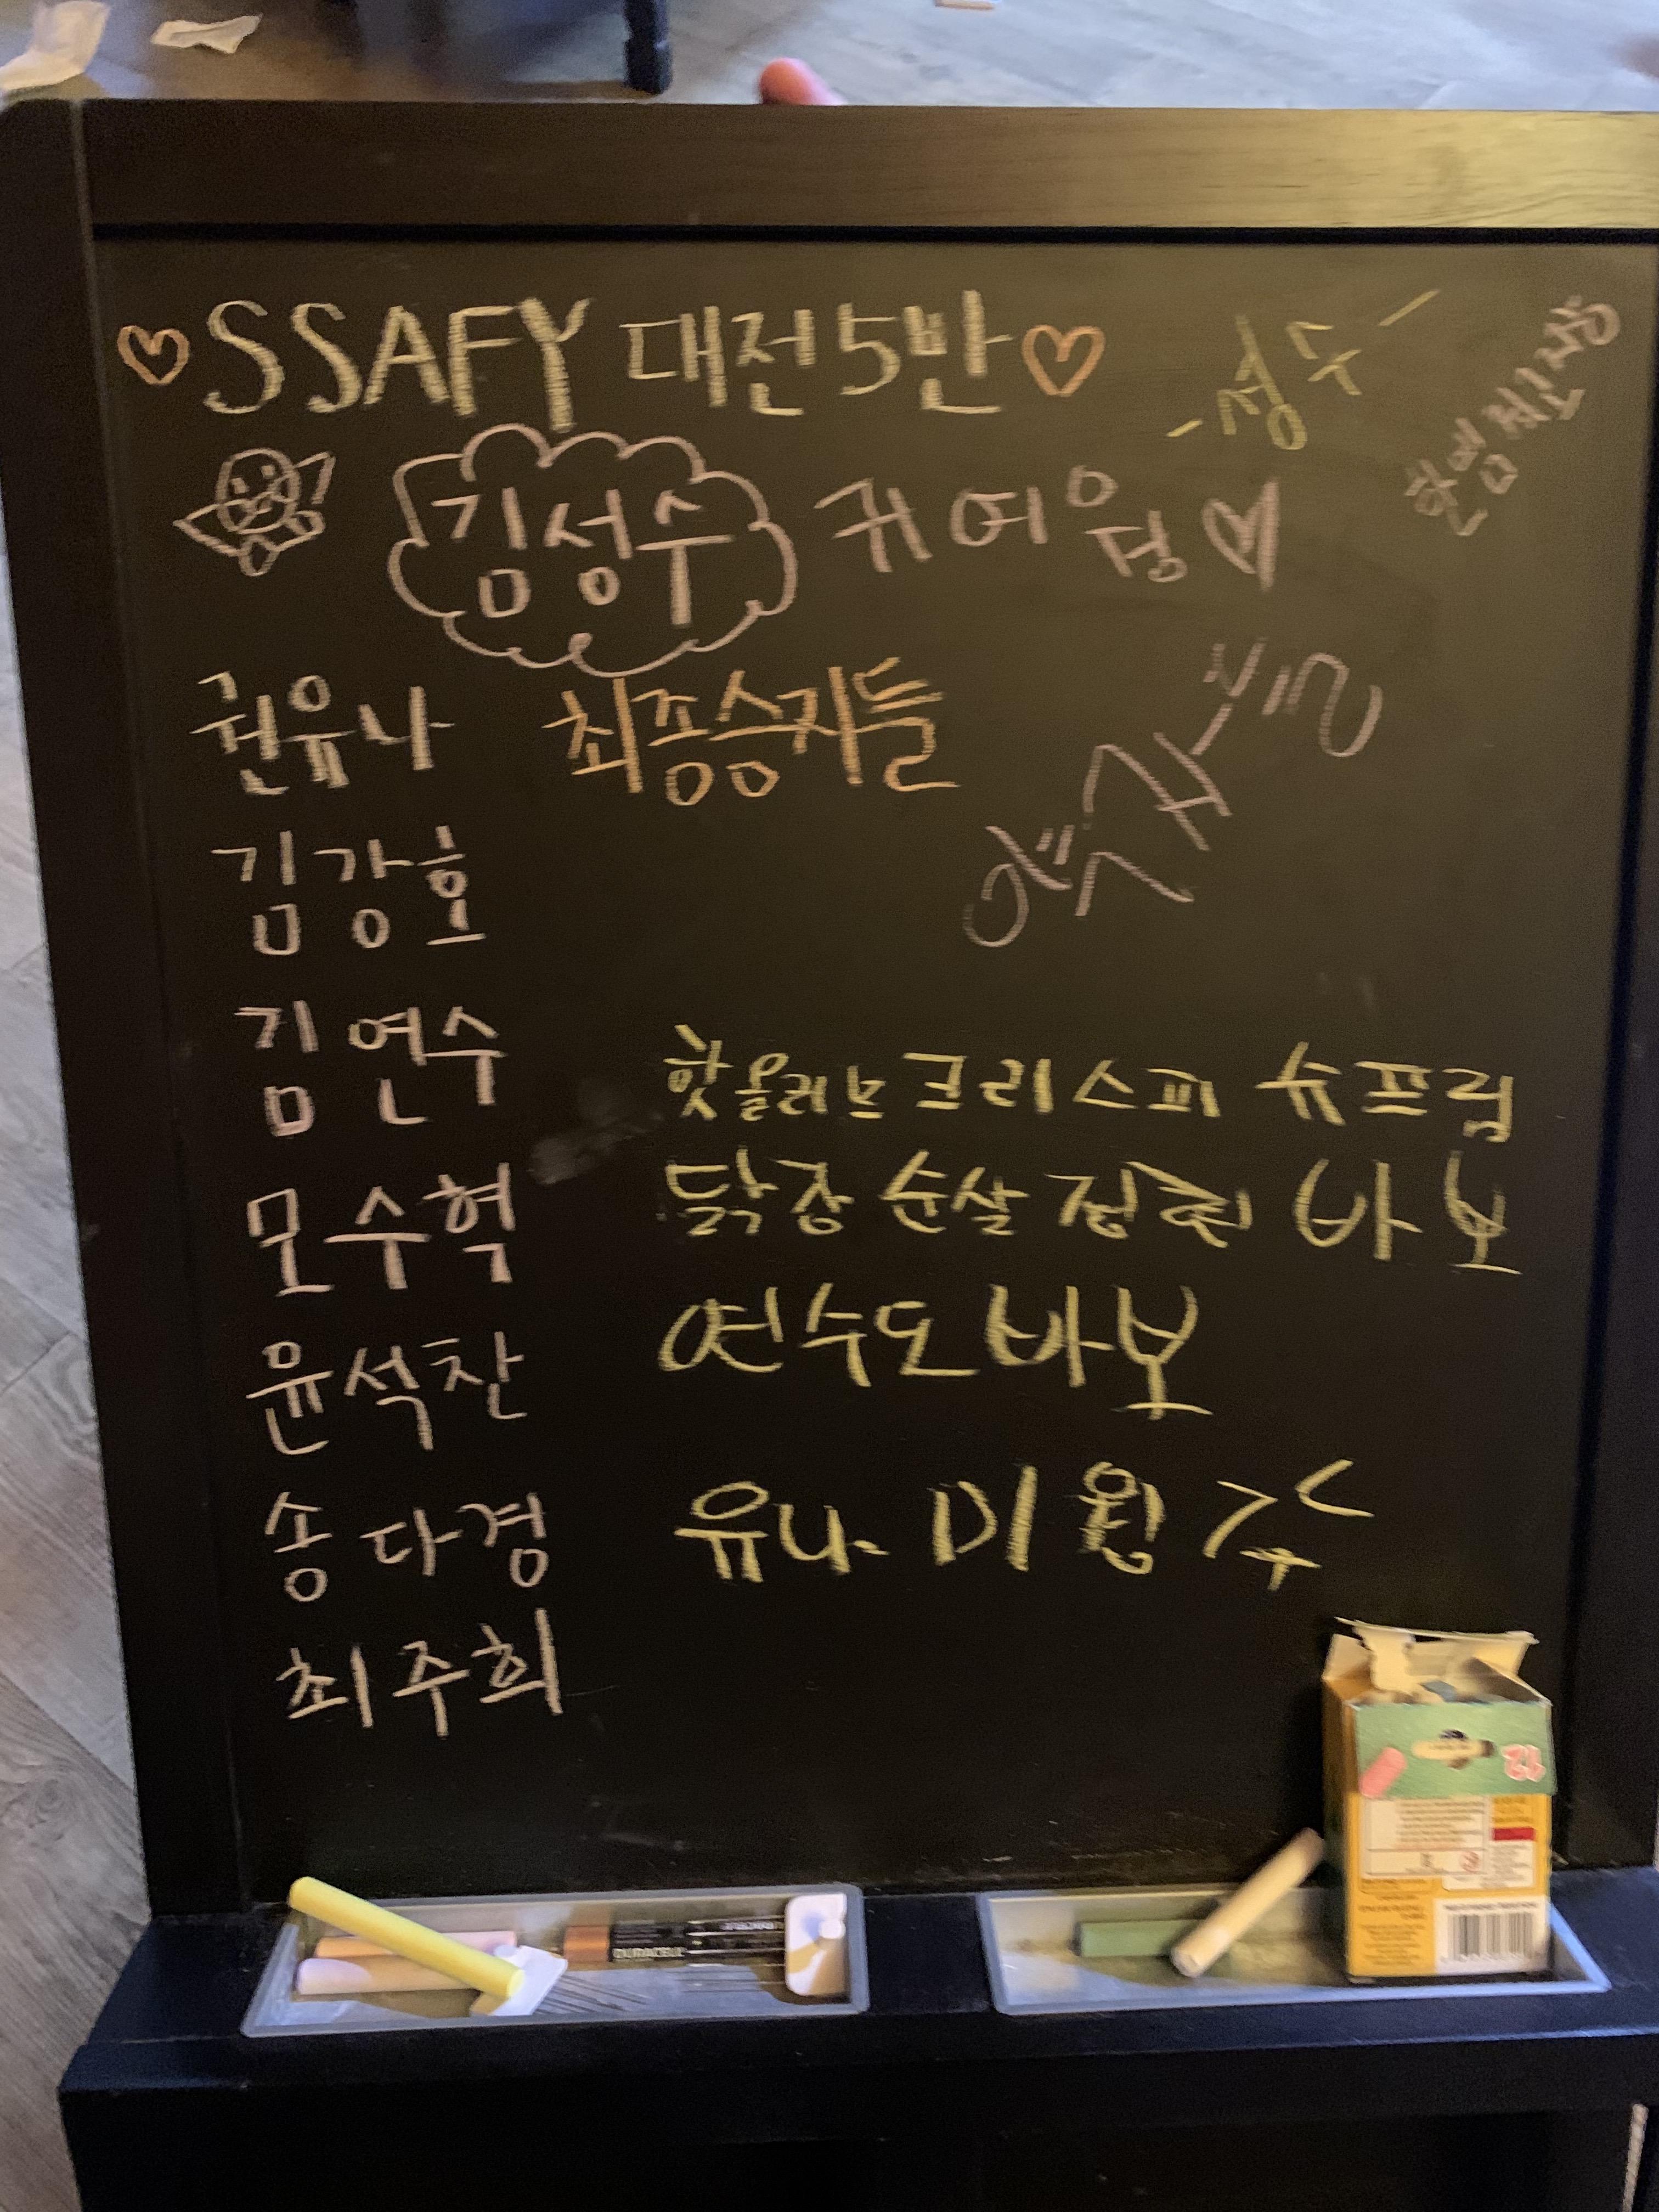 ♡SSAFY 대전 5반♡
-성수-
김성수 귀여웡♡
권유나 최종승자들
김강호
김연수
핫올리브크리스피 슈프림
모수혁
닭장 순살 바보
연수도 바보
윤석찬
유나 미웡 >.<
송다경
최주희
DURACELL
12